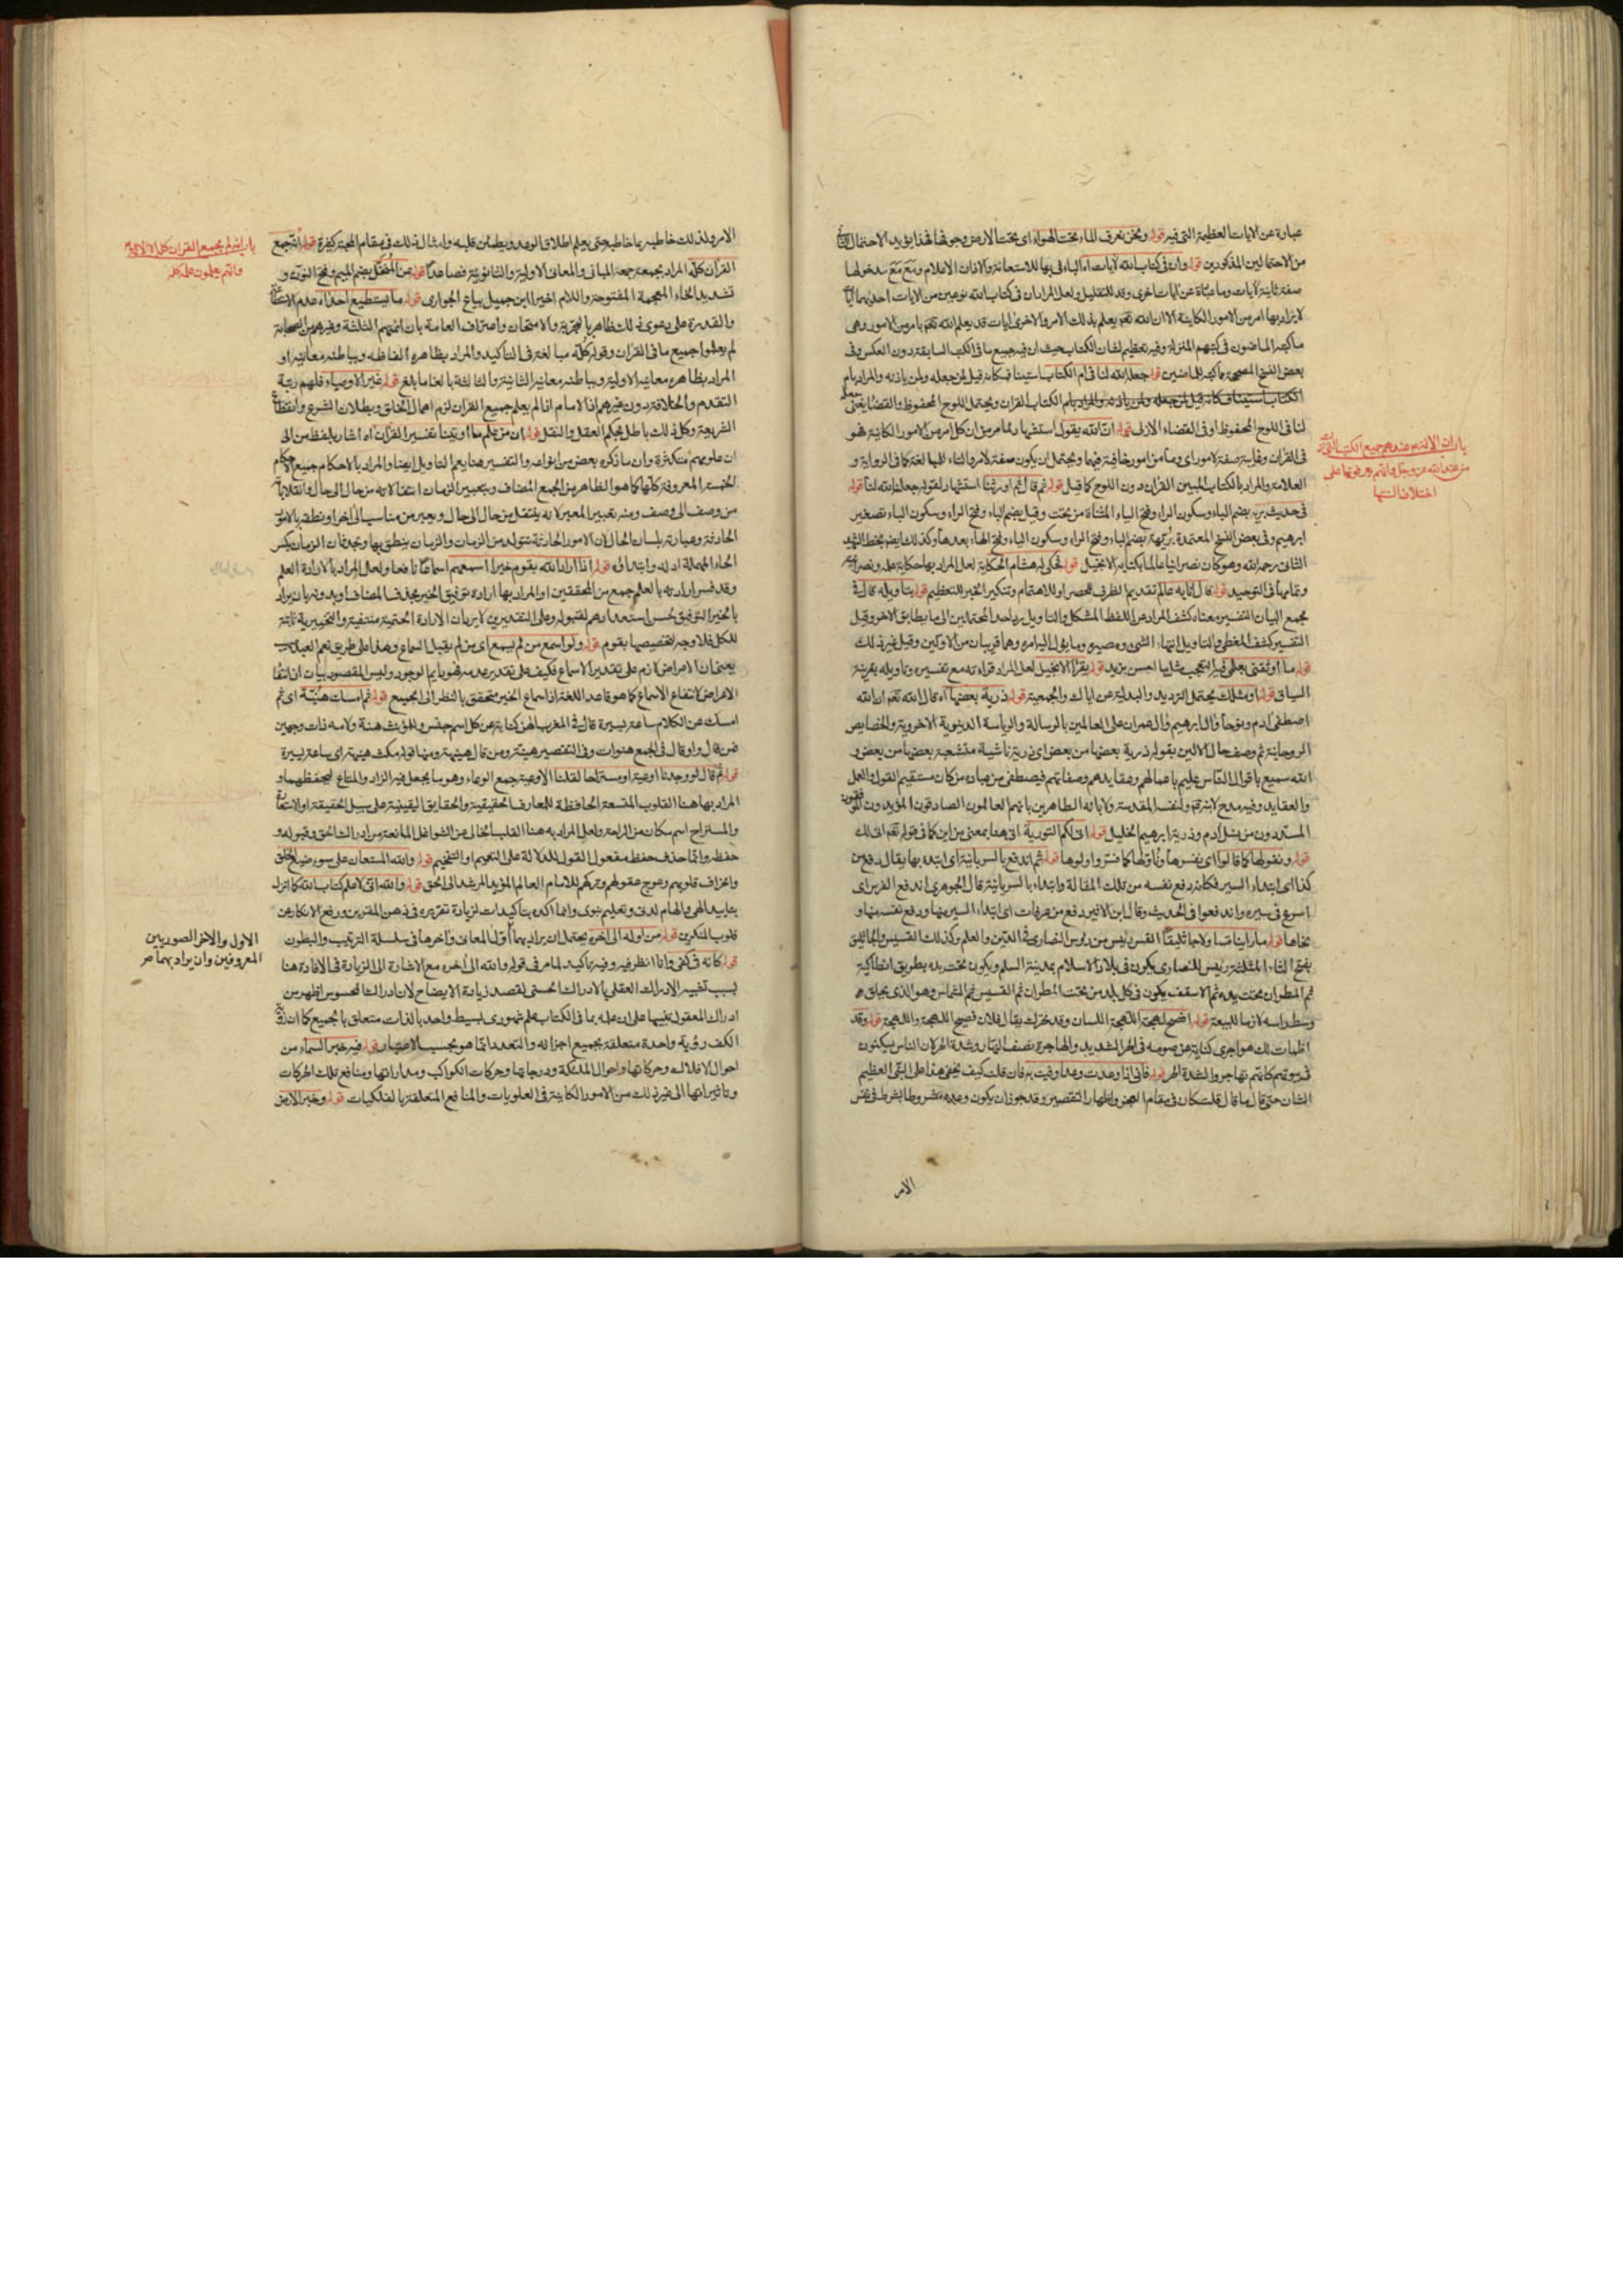 عبارة عن الايات العظيمة التى فيه قوله ونحن نعرف الماء تحت الهواء اى تحت الارض وجوفها هذا يؤيد الاحتمال الثانى
من الاحتمالين المذكورين قوله وان فى كتاب الله لايات اه الباء فى بها للاستعانة والاذن الاعلام
صفة ثانية لايات وما عبارة عن ايات اخرى وقد للتقليل ولعل المراد ان فى كتاب الله نوعين من الايات احدهما ايات
لا يراد بها امر من الامور الكاينة الا ان الله تعم يعلم بذلك الامر والاخرى ايات قد يعلم الله تعم بامر من الامور وهى
ما كتبه الماضون فى كتبهم المنزلة وفيه تعظيم لشان الكتاب حيث ان فيه جميع ما فى الكتب السابقة دون العكس وفى
بعض النسخ المصححة ما كتبه للماضين قوله جعله الله لنا فى ام الكتاب استيناف كانه قيل لمن جعله ولمن ياذن به والمراد بام
الكتاب القران ويحتمل اللوح المحفوظ والقضا يعنى جعله
لنا فى اللوح المحفوظ او فى القضاء الازلى قوله ان الله يقول استشهاد لما مر من ان كل امر من الامور الكاينة فهو
فى القران وغايبة صفة لامور اى وما من امور خافية فيهما ويحتمل ان يكون صفة لامر والتاء للمبالغة كما فى الرواية و
العلامة والمراد بالكتاب المبين القران دون اللوح كما قيل قوله ثم قال ثم اورثنا استشهاد لقوله جعله الله لنا قوله
فى حديث بريه بضم الباء وسكون الراء وفتح الياء المثناة من تحت وقيل بضم الباء وفتح الراء وسكون الياء تصغير
ابرهيم وفى بعض النسخ المعتمدة بريهة بضم الباء وفتح الراء وسكون الياء وفتح الهاء بعدها وكذلك ايضم بخط الشهيد
الثانى رحمه الله وهو كان نصرانيا عالما بكتابه الانجيل قوله فحكى له هشام الحكاية لعل المراد بها حكاية
وتمامها فى التوحيد قوله قال انا به عالم تقديم الظرف للحصر او للاهتمام وتنكير الخبر للتعظيم قوله بتاويله قال فى
مجمع البيان التفسير معناه كشف المراد عن اللفظ المشكل والتاويل رد احد المحتملين الى ما يطابق الاخر وقيل
التفسير كشف المغطى والتاويل انتهاء الشىء ومصيره وما يؤل اليه امره وهما قريبان من الاولين وقيل غير ذلك
قوله ما اوثقنى بعلمى فيه التعجب مثل ما احسن بزيد قوله يقرأ الانجيل لعل المراد قراءته مع تفسيره وتاويله بقرينة
السياق قوله او مثلك يحتمل الترديد والبدلية عن اياك والجمعية قوله ذرية بعضها اه قال الله تعم ان الله
اصطفى ادم ونوحا وال ابرهيم وال عمران على العالمين بالرسالة والرياسة الدينوية الاخروية والخصايص
الروحانية ثم وصف حال الالين بقوله ذرية بعضها من بعض اى ذرية ناشية متشعبة بعضها من بعض و
الله سميع باقوال الناس عليم باعمالهم وعقايدهم وصفاتهم فيصطفى من عباده من كان مستقيم القول والعمل
والعقايد وفيه مدح لابنه ولنفسه المقدسة ولابائه الطاهرين بانهم العالمون الصادقون المؤيدون الموفقون
المسددون من نسل ادم وذرية ابرهيم الخليل قوله انى لكم التورية انى هنا بمعنى من اين كما فى قوله تعم انى لك
قوله ونقولها كما قالوا اى نفسرها ونأولها كما فسروا واولوها قوله ثم اندفع بالسريانية اى ابتدء بها يقال دفع من
كذا اى ابتداء السير فكانه دفع نفسه من تلك المقالة وابتداء بالسريانية قال الجوهرى اندفع الفرس اى
اسرع فى سيره واندفعوا فى الحديث وقال ابن الاثير دفع من عرفات اى ابتداء السير منها ودفع نفسه منها و
نحاها قوله ما راينا قسا ولا جاثليقا القس رئيس من رؤس النصارى فى الدين والعلم وكذلك القسيس والجاثليق
بفتح الثاء المثلثة رئيس للنصارى يكون فى بلاد الاسلام بمدينة السلم ويكون تحت يد بطريق انطاكية
ثم المطران تحت يده ثم الاسقف يكون فى كل بلد من تحت المطران ثم القسيس ثم الشماس وهو الذى يحلق
وسط راسه لازما للبيعة قوله افصح لهجة اللهجة اللسان وقد تحرك يقال فلان فصيح اللهجة واللهجة قوله وقد
اظمأت لك هواجرى كناية عن صومه فى الحر الشديد والهاجرة نصف النهار وشدة الحر لان الناس يسكنون
فى بيوتهم كانهم تهاجروا لشدة الحر قوله فانى انا وعدت وعدا وفيت به فان قلت كيف يخفى هذا على النبى العظيم
الشان حتى قال ما قال قلت كان فى مقام العجز واظهار التقصير وقد جوز ان يكون وعده مشروطا بشرط فى نفس
الامر
باب ان الائمة عندهم جميع الكتب التى نزلت
من عند الله عز وجل وانهم يعرفونها على
اختلاف السنتها
الامر ولذلك خاطبه بما خاطبه حتى يعلم اطلاق الوعد ويطمئن قلبه وامثال ذلك فى مقام المحبة كثيرة قوله انه جمع
القران كله المراد بجمعه جمعه المبانى والمعانى الاولية والثانوية فصاعدا قوله عن المنخل بضم الميم وفتح النون و
تشديد الخاء المعجمة المفتوحة واللام اخيرا ابن جميل بياع الجوارى قوله ما يستطيع احد اه عدم الاستطاعة
والقدرة على دعوى ذلك ظاهر بالتجربة والامتحان واعتراف العامة بان ائمتهم الثلثة وغيرهم من الصحابة
لم يعلموا جميع ما فى القران وقوله كله مبالغة فى التاكيد والمراد بظاهره الفاظه وبباطنه معانيه او
المراد بظاهره معانيه الاولية وبباطنه معانيه الثانية والثالثة بالغا ما بلغ قوله غير الاوصياء فلهم رتبة
التقدم والخلافة دون غيرهم اذ الامام اذا لم يعلم جميع القران لزم اهمال الخلق وبطلان الشرع وانقطاع
الشريعة وكل ذلك باطل بحكم العقل والنقل قوله ان من علم ما اوتينا تفسير القران اه اشار بلفظ من الى
ان علومهم متكثرة وان ما ذكره بعض من انواعه والتفسير هنا يعم التاويل ايضا والمراد بالاحكام جميع الاحكام
الخمسة المعروفة كلها كما هو الظاهر من الجمع المضاف وبتغيير الزمان انتقالاته من حال الى حال وانقلاباته
من وصف الى وصف ومنه تعبير المعبر لانه ينتقل من حال الى حال ويعبر من مناسب الى اخر او نطقه بالامور
الحادثة وعبارته بلسان الحال لان الامور الحادثة تتولد من الزمان والزمان ينطق بها وحدثان الزمان بكسر
الحاء المهملة اوله وابتدائه قوله اذا اراد الله بقوم خيرا اسمعهم اسماعا نافعا ولعل المراد بالارادة العلم
وقد فسر ارادته بالعلم جمع من المحققين او المراد بها ارادة توفيق الخير بحذف المضاف او بدونه بان يراد
بالخير التوفيق حسن استعدادهم لقبوله وعلى التقديرين لا يرد ان الارادة الحتمية منتفية والتخييرية ثابتة
للكل فلا وجه لتخصيصها بقوم قوله ولو اسمع من لم يسمع اى من لم يقبل السماع وهذا على طريق نعم العبد صهيب
يعنى ان الاعراض لازم على تقدير الاسماع فكيف على تقدير عدمه فهو دايم الوجود وليس المقصود بيان ان انتفاء
الاعراض لانتفاع الاسماع كما هو قاعد اللغة اذ اسماع الخير متحقق بالنظر الى الجميع قوله ثم امسك هنيئة اى ثم
امسك عن الكلام ساعة يسيرة قال فى المغرب الهن كناية عن كل اسم جنس وللمؤنث هنة ولامه ذات وجهين
فمن قال واو قال فى الجمع هنوات وفى التصغير هنية ومن قال هنيهة ومنها قوله مكث هنيهة اى ساعة يسيرة
قوله ثم قال لو وجدنا اوعية او مستراحا لقلنا الاوعية جمع الوعاء وهو ما يجعل فيه الزاد والمتاع ليحفظهما و
المراد بها هنا القلوب المتسعة الحافظة للمعارف الحقيقية والحقايق اليقينية على سبيل الحقيقة او الاستعارة
والمستراح اسم مكان من الراحة ولعل المراد به هنا القلب الخالى عن الشواغل المانعة من ادراك الحق وقبوله و
حفظه وانما حذف مفعول القول للدلالة على التعميم او التفخيم قوله والله المستعان على سوء صنيع الخلق
وانحراف قلوبهم وعوج عقولهم وتركهم للامام العالم المؤيد المرشد الى الحق قوله والله انى لاعلم كتاب الله كما انزل
بتاييد الهى والهام لدنى وتعليم نبوى وانما اكده بتاكيدات لزيادة تقريره فى ذهن المقربين ورفع الانكار عن
قلوب المنكرين قوله من اوله الى اخره يحتمل ان يراد بهما اول المعانى واخرها فى سلسلة الترتيب والبطون
قوله كانه فى كفى وانا انظر فيه وفيه تاكيد لما مر فى قوله والله الى اخره مع الاشارة الى الزيادة فى الافادة هنا
بسبب تشبيه الادراك العقلى بالادراك الحسى لقصد زيادة الايضاح لان ادراك المحسوس اظهر من
ادراك المعقول تنبيها على ان علمه بما فى الكتاب علم شهودى بسيط واحد بالذات متعلق بالجميع كما ان رؤية
الكف رؤية واحدة متعلقة بجميع اجزائه والتعدد انما هو بحسب الاعتبار قوله فيه خبر السماء من
احوال الافلاك وحركاتها واحوال الملئكة ودرجاتها وحركات الكواكب ومداراتها ومنافع تلك الحركات
وتاثيراتها الى غير ذلك من الامور الكاينة فى العلويات والمنافع المتعلقة بالفلكيات قوله وخبر الارض
باب انه لم يجمع القران كله الا الائمة
وانهم يعلمون علمه كله
الاول والاخر الصوريين
المعروفين وان يراد بهما